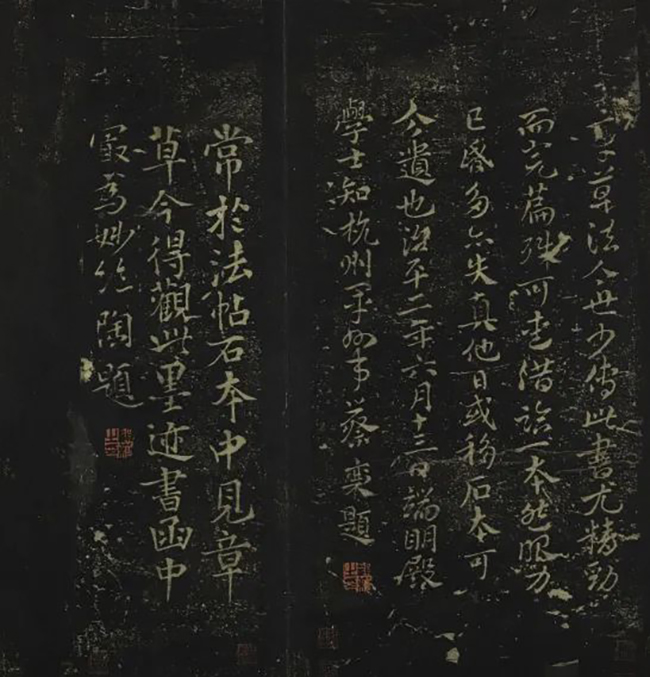 章草法今世少傳此書尤精勁
而完篇殊可愛借詒一本然眼力
已昏多亦失真他日或移石本可
今遺也治平二年六月十三日端明殿
學士知杭州軍州事蔡襄題
常於法帖石本中見章
草今得觀此墨迹書函中
最為妙絶陶題